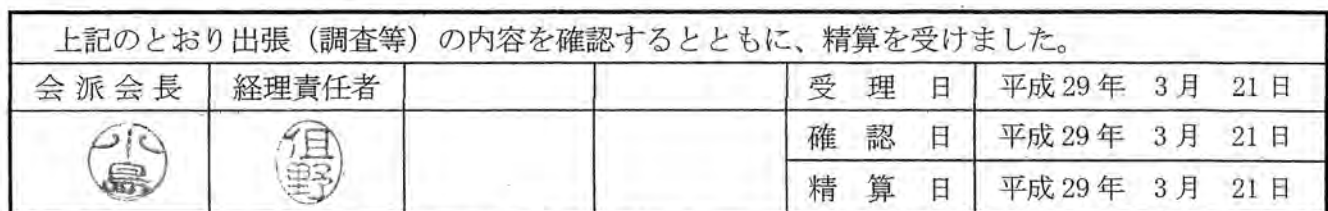 上記のとおり出張（調査等）の内容を確認するとともに、精算を受けました。
会派会長 経理責任者 受理日 平成29年 3月 21日
小島 但野 確認日 平成29年 3月 21日
精算日 平成29年 3月 21日